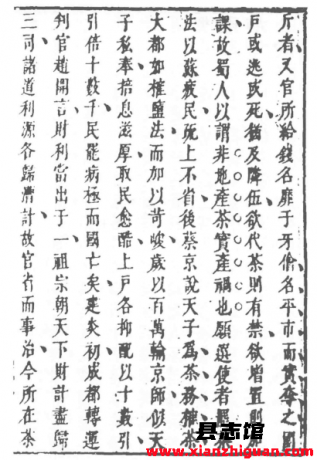 斤者又官所給錢名靡于牙儈名平市而實奪之園
戶或逃或死猶及伍欲代茶則有禁欲增置則
課故蜀人以謂非地產茶實產禍也願選使者
法以蘇疲民死上不省後蔡京說天子為茶務榷茶
大都如榷鹽法而加以苛峻歲以百萬輸京師佀天
子私奉掊息滋厚取民愈酷上戶各抑配以十數引
引倍十數千民罷病極而國亡矣建炎初成都轉運
判官趙開言財利當出于一祖宗朝天下財計盡歸
三司諸道利源各歸漕計故官省而事治今所在茶
县志馆
www.xianzhiguan.com